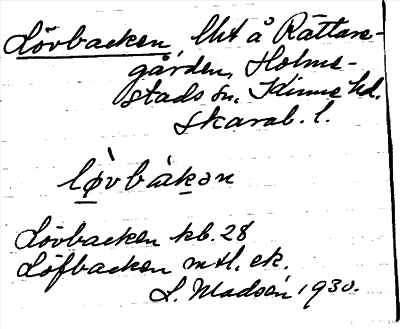 Lövbacken, lht å Rättare-
gården, Holme-
stads sn. Kinne hd.
Skarab. l.
lø̀vbàkən
Lövbacken kb. 28
Löfbacken mtl. ek.
L. Madsén 1930.